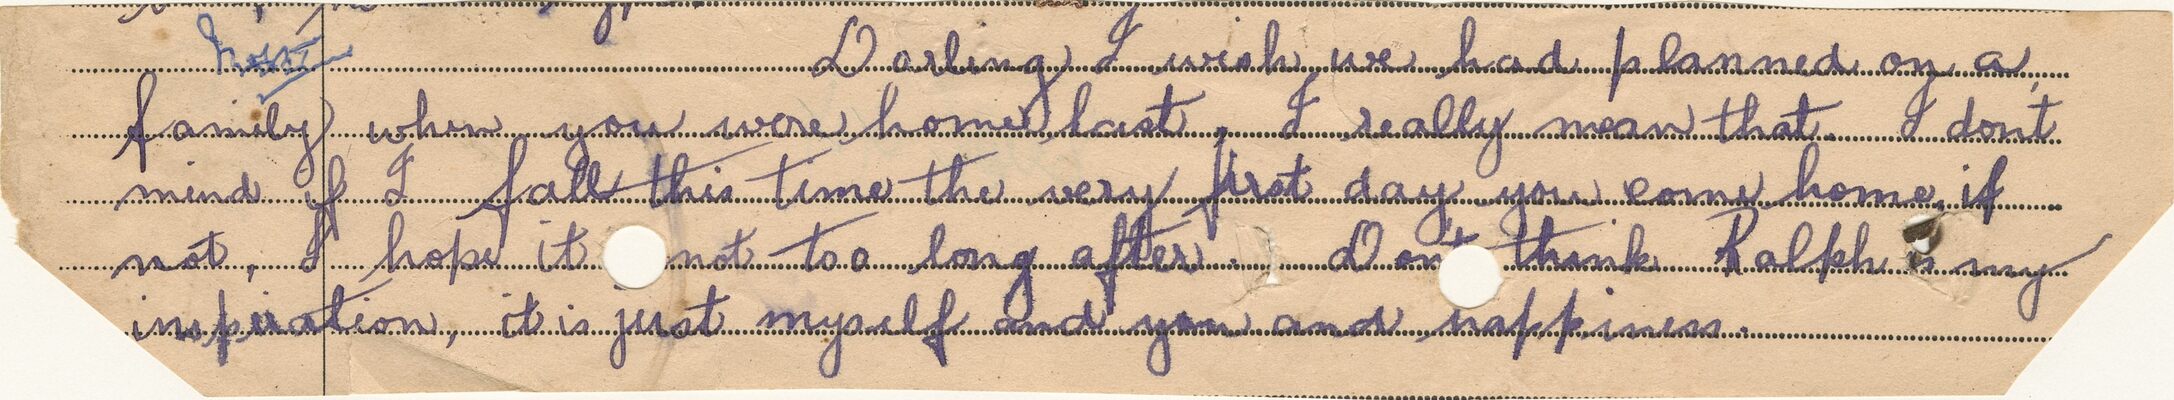 Darling I wish we had planned on a
family when you were home last, I really mean that. I don't
mind if I fall this time the very first day you come home, if
not, I hope it not too long after. Don't think Ralph is my
inspiration, it is just myself and you and happiness.